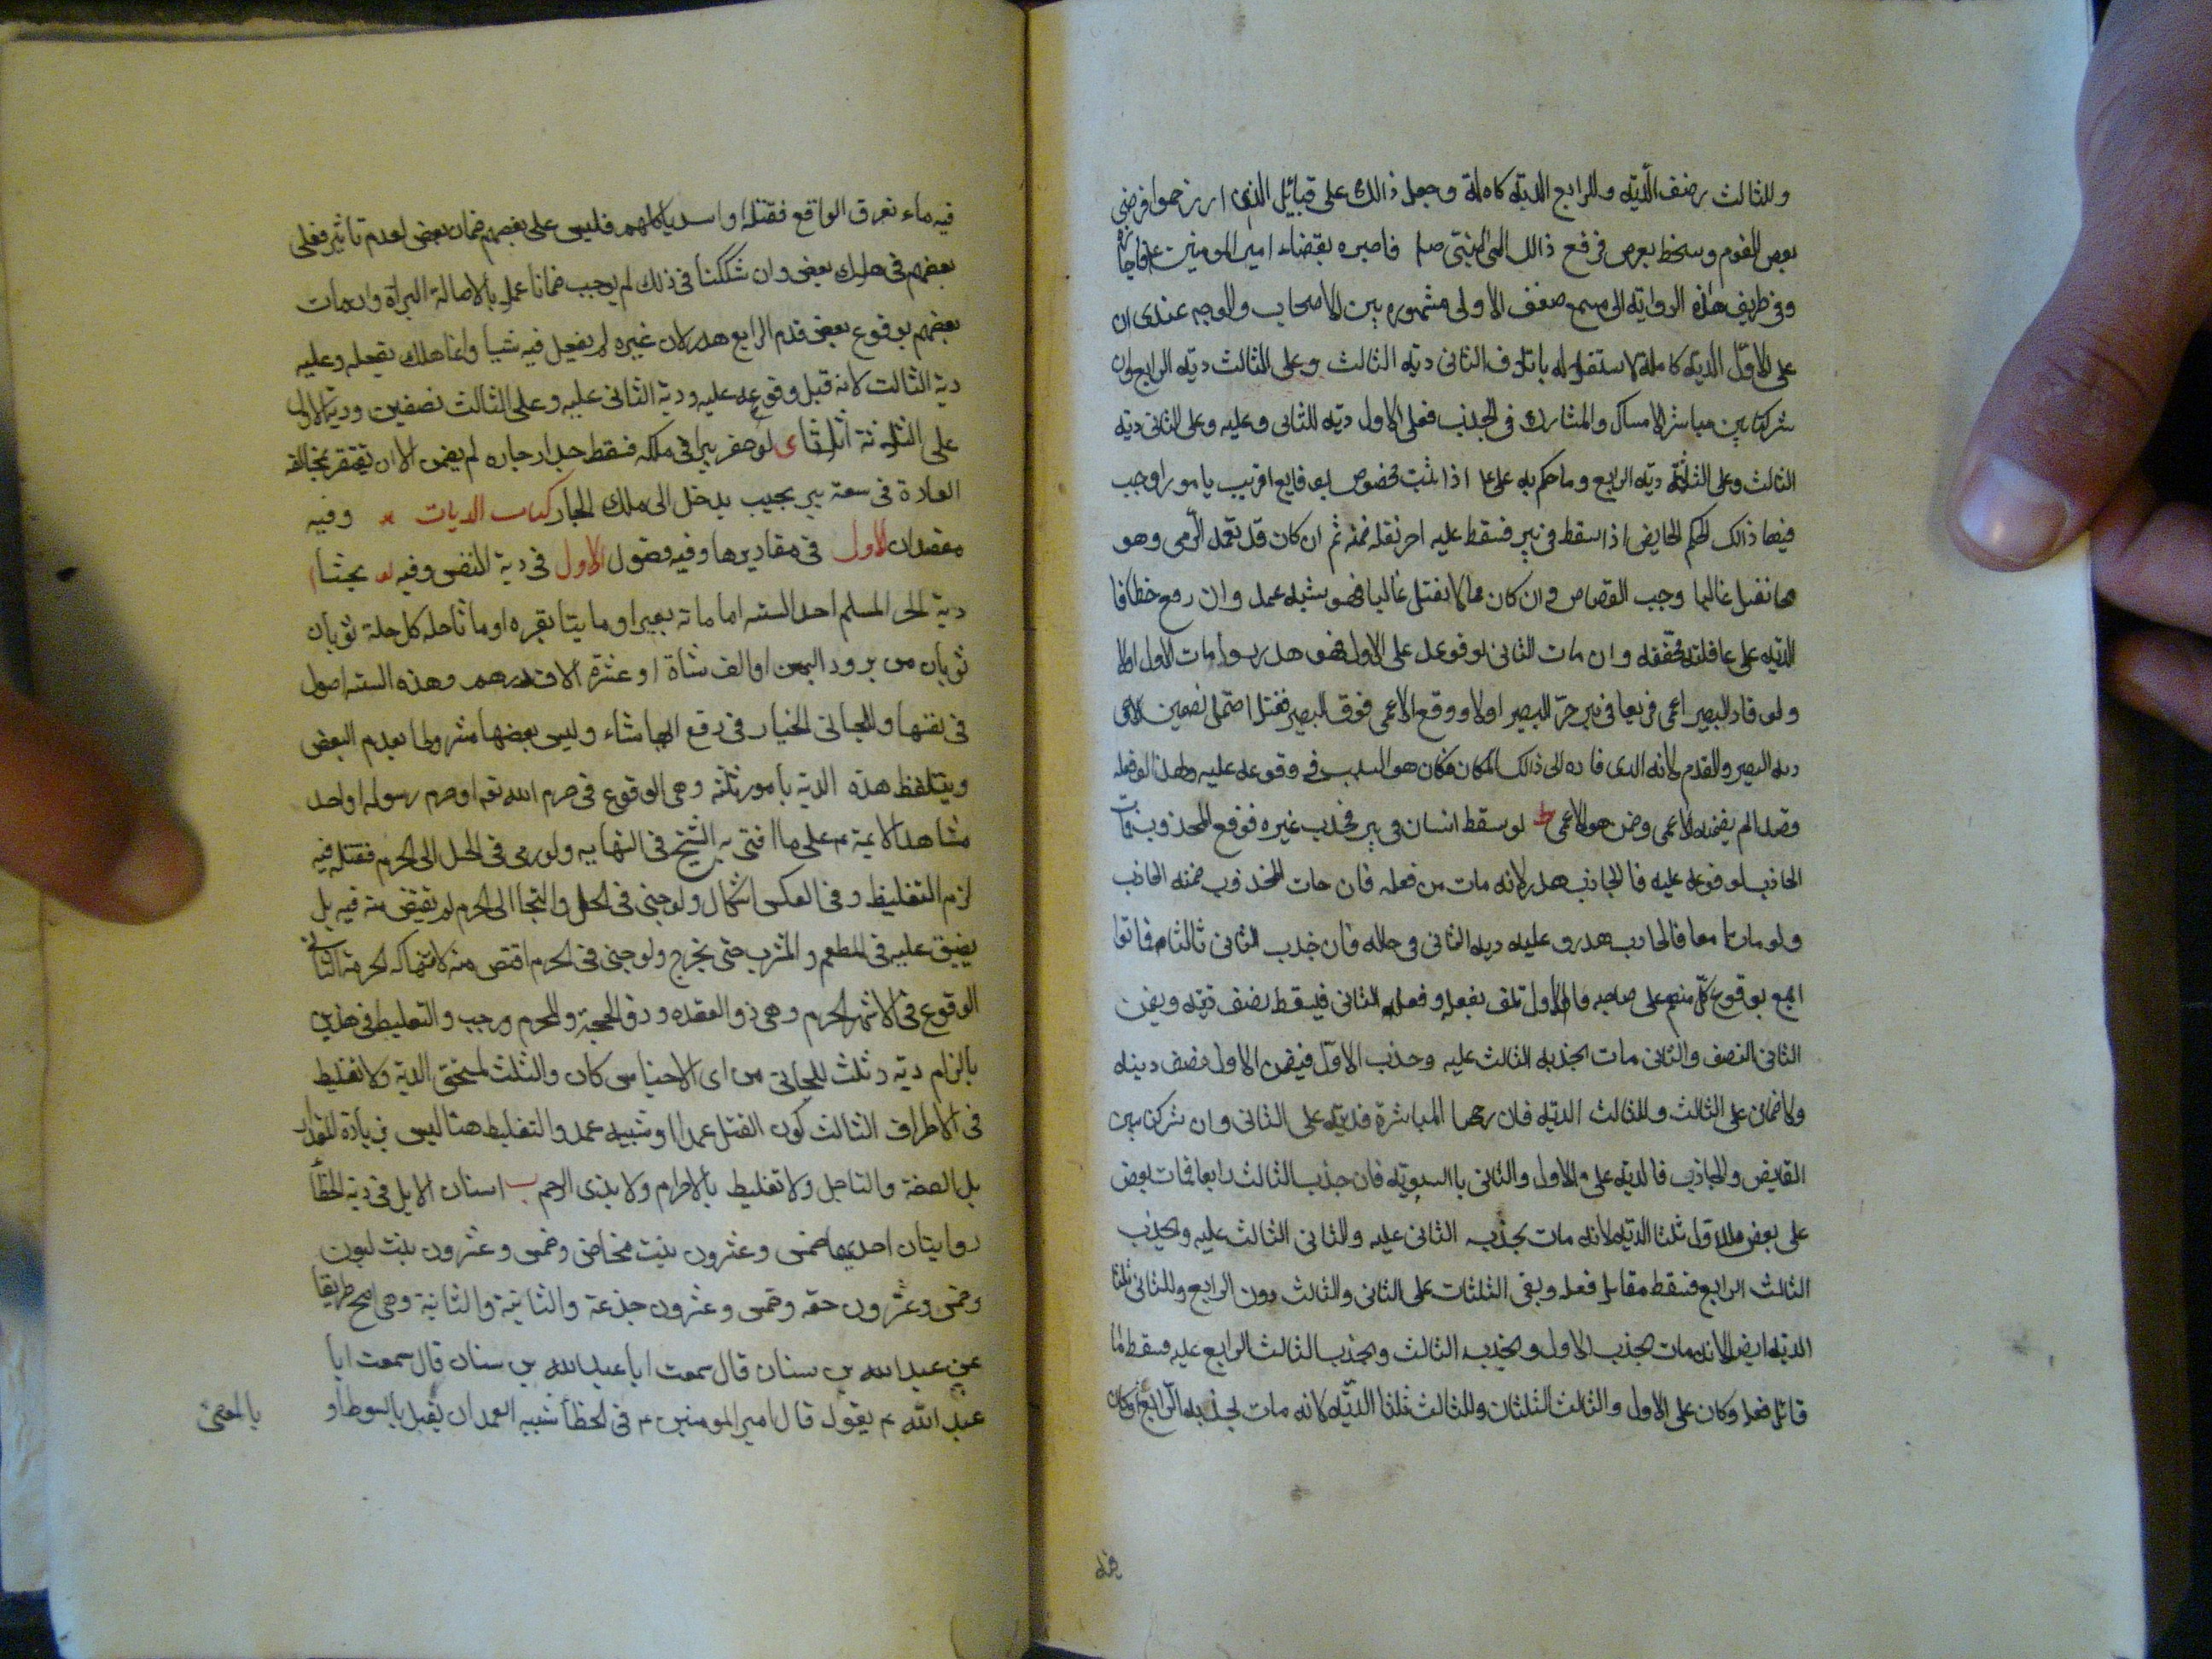 وللثالث نصف الديّه وللرابع الديّه كاملة وجعل ذالك على قبائل الذين ازدحموا فرضى
بعض القوم وسخط بعض فرفع ذالك الى النبى صلم فاخبره بقضاء امير المومنين ع فاجازه
وفى طريف هذه الروايه الى مسمع ضعف الاولى مشهوره بين الاصحاب والوجه عندى ان
على الاوّل الديّه كاملة لاستقلاله باتلاف الثانى ديّه الثالث وعلى الثالث ديّه الرابع ان
شركنا بين مباشر الامساك والمشارك فى الجذب فعلى الاول ديّه للثانى وعليه وعلى الثانى ديّه
الثالث وعلى الثلثة ديّه الرابع وما حكم به على ع اذا ثبت مخصوص بوقايع اقرنت بامور اوجب
فيها ذالك الحكم الخايض اذا سقط فى بير فسقط عليه اخر نقله ضمنه ثم ان كان قد تعمّد الرّمى وهو
مما نقتل غالبا وجب القصاص وان كان مما لا نقتل غالبا فهو شبه عمد وان رمع خطا فا
الديّه على عاقلته مخففه وان مات الثانى لوقوعه على الاول فهو هدر سوا مات الاول اولا
ولو قاد البصير اعمى فربعا فى بير خرّ البصير اولا ووقع الاعمى فوق البصير فقتل احتمل تضمين الاعمى
ديه البصير والقدم لانه الذى قاده الى ذالك المكان فكان هو السبب فى وقوعه عليه ولهذا لو فعله
قصدا لم يضمنه الاعمى وضمن هو الاعمى ط لو سقط انسان فى بير فجذب غيره فوقع المجذوب فمات
الجاذب لوقوعه عليه فالجاذب هدر لانه مات من فعله فان مات المجذوب ضمنه الجاذب
ولو ماتا معا فالجاذب هدر وعليه ديه الثانى فى ماله فان جذب الثانى ثالثا فماتوا
اجمع بوقوع كل منهم على صاحبه فالاول تلف بفعله وفعل الثانى فيسقط نصف ديّه ويضمن
الثانى النصف والثانى مات بجذبه الثالث عليه وجذب الاوّل فيضمن الاول نصف ديته
ولا ضمان على الثالث وللثالث الديّه فان رجحنا المباشرة فديّه على الثانى وان شركنا بين
القابض والجاذب فالديّه على الاول والثانى بالسويّه فان جذب الثالث رابعا فمات بعض
على بعض فللاول ثلثا الديّه لانه مات بجذبه الثانى عليه والثانى الثالث عليه وبجذب
الثالث الرابع فسقط مقابل فعله وبقى الثلثان على الثانى والثالث دون الرابع وللثانى ثلثا
الديّه ايض لانه مات بجذب الاول وبجذبه الثالث وبجذب الثالث الرابع عليه فسقط ما
قابل فعله وكان على الاول والثالث الثلثان وللثالث ثلثا الديّه لانه مات بجذبه الرابع وكان
فيه ماء نغرق الواقع فقتله او اسد ياكلهم فليس على بعضهم ضمان بعض لعدم تاثير فعلى
بعضهم فى هلاك بعض وان شككنا فى ذلك لم يوجب ضمانا عملا بالاصالة البراة وان مات
بعضهم بوقوع بعض فدم الرابع هدر لان غيره لم يفعل فيه شيا وانما هلك بفعله وعليه
دية الثالث لانه قبل وقوعه عليه ودية الثانى عليه وعلى الثالث نصفين ودية الاول
على الثلاثة اثلاثا ى لو حفر بيرا فى ملكه فسقط جدار جاره لم يضمن الا ان يقتصر بمخالفه
العادة فى سعة بير بحيث يدخل الى ملك الجار كتاب الديات وفيه
مقصدان الاول فى مقاديرها وفيه فصول الاول فى دية النفس وفيه لو بحثا ا
دية الحر المسلم احد السته اما ماته بعير او مايتا بقره او ماتا حله كل حلة ثوبان
ثوبان من برود اليمن او الف شاة او عشرة الاف درهم وهذه السته اصول
فى نفسها وللجانى الخيار فى دفع ايها شاء وليس بعضها مشروطا بعدم البعض
ويتغلظ هذه الدية بامور ثلثه وهى الوقوع فى حرم الله تعه او حرم رسوله او احد
مشاهد الايمة ع على ما افتى به الشيخ فى النهايه ولو رمى فى الحل الى الحرم فقتله فيه
لزم التغليظ وفى العكس اشكال ولو جنى فى الحل والتجا الى الحرم لم يقتص منه فيه بل
يضيق عليه فى المطعم والمشرب حتى يخرج ولو جنى فى الحرم اقتص منه لانتهاكه الحرمة الثانى
الوقوع فى الاشهر الحرم وهى ذو القعده وذو الحجة والمحرم ورجب والتغليط فى هذين
بالزام دية وثلث للجانى من اى الاجناس كان والثلث لمستحق الدية ولا تغليظ
فى الاطراف الثالث كون القتل عمدا او شبيه عمد والتغليظ هنا ليس فى يادة المقدار
بل الصفة والتاجيل ولا تغليط بالاحرام ولا بذى الرحم ب اسنان الابل فى دية الخطأ
روايتان احديهما خمس وعشرون بنت مخاض وخمس وعشرون بنت لبون
وخمس وعشرون حقه وخمس وعشرون جذعة والثانية والثانية وهى اصح طريقا
عن عبد الله بن سنان قال سمعت ابا عبد الله بن سنان قال سمعت ابا
عبد الله ع يقول قال امير المومنين ع فى الخطأ شبيه العمد ان يقبل بالسوط او
بالعصى